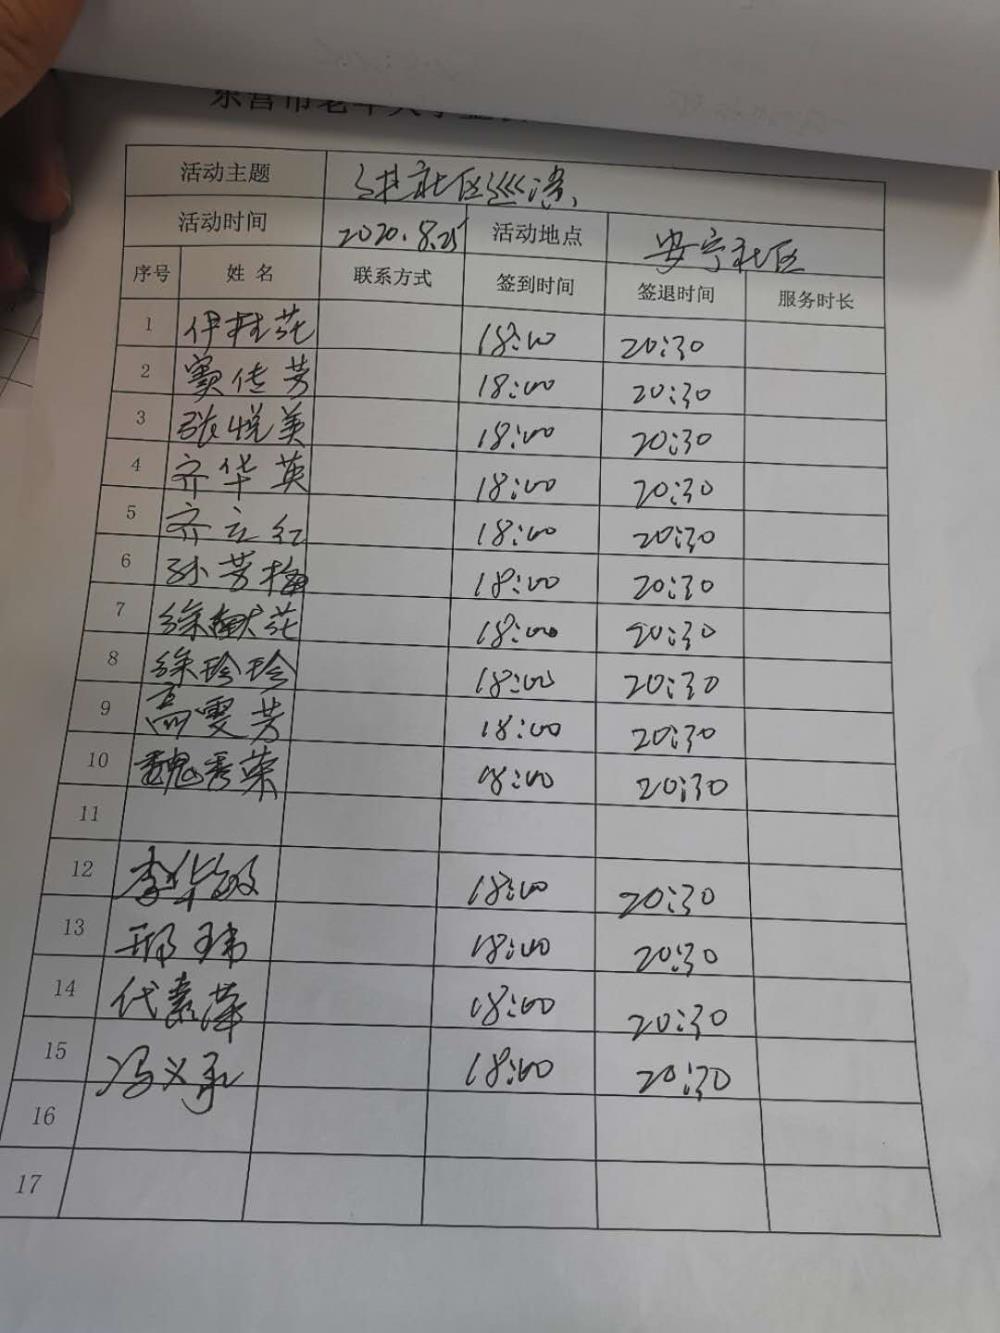 东营市老年大学
活动主题 进社区巡演
活动时间 2020.8.25 活动地点 安宁社区
序号 姓名 联系方式 签到时间 签退时间 服务时长
1 伊桂花 18:00 20:30
2 窦传芳 18:00 20:30
3 张悦美 18:00 20:30
4 齐华英 18:00 20:30
5 齐立红 18:00 20:30
6 孙芳梅 18:00 20:30
7 徐献花 18:00 20:30
8 徐珍珍 18:00 20:30
9 高雯芳 18:00 20:30
10 魏秀荣 18:00 20:30
11
12 李华 18:00 20:30
13 邢玮 18:00 20:30
14 代素萍 18:00 20:30
15 冯义 18:00 20:30
16
17